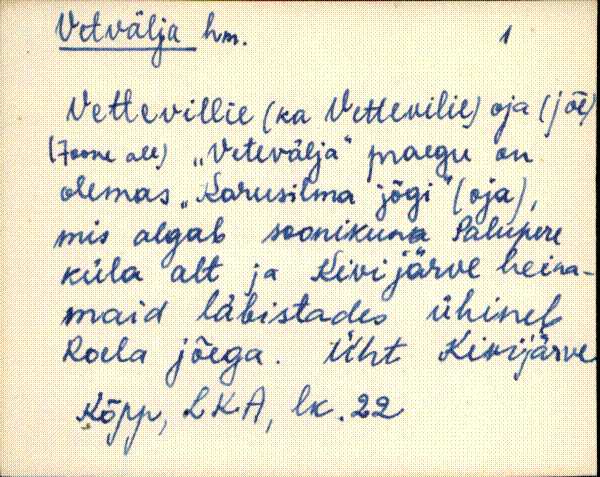 Vetvälja hm. 1
Vettevillie (ka Vettevilie) oja (jõe)
(Joone all) „Vetevälja" praegu on
olemas „Karusilma jõgi" (oja),
mis algab soonikuna Salupere
küla alt ja Kivijärve heina-
maid läbistades ühineb
Roela jõega. Üht Kivijärve
Kõpp, LKA, lk. 22